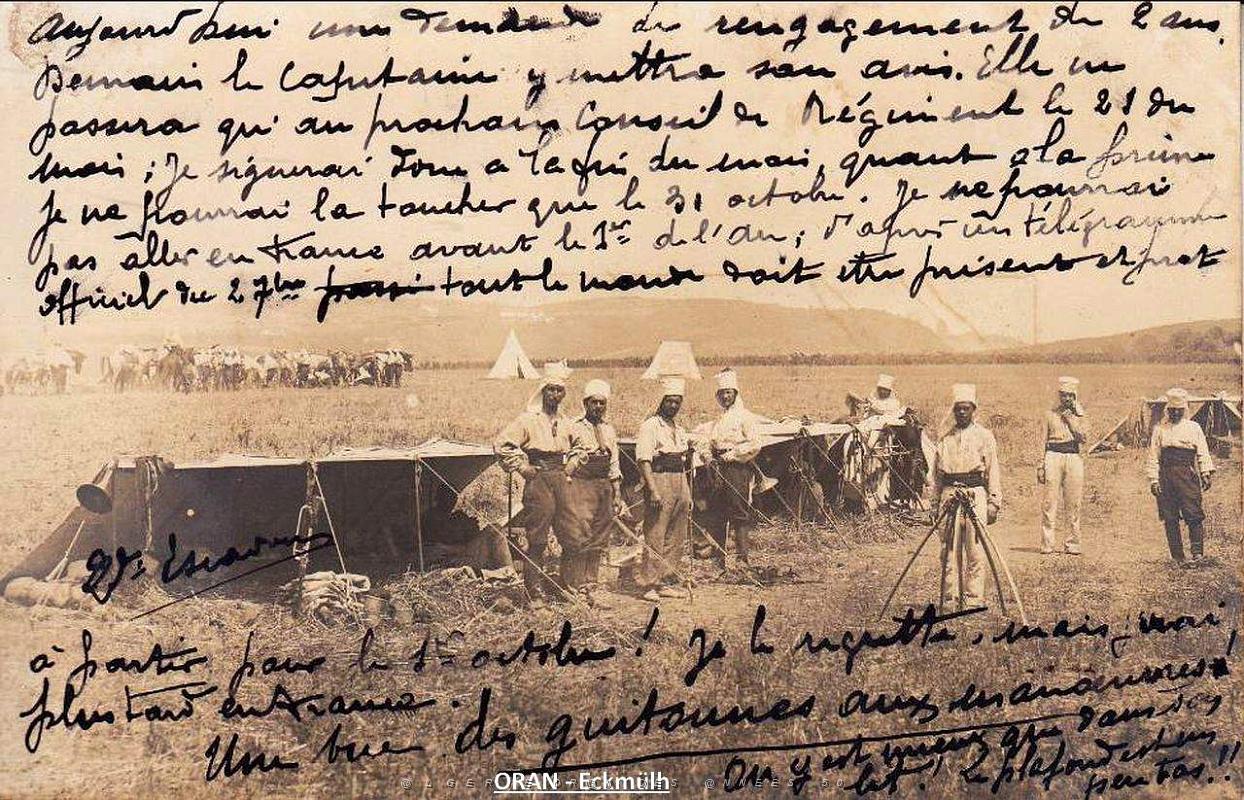 Aujourd'hui une demande de rengagement de 2 ans.
Demain le Capitaine y mettra son avis. Elle ne
passera qu'au prochain Conseil de Régiment le 21 du
mois ; Je signerai donc a la fin du mois, quant a la prime
je ne pourrai la toucher que le 31 octobre. Je ne pourrai
pas aller en France avant le 1er de l'an ; d'après un télégramme
officiel du 27bre tout le monde doit être présent et prêt
à partir pour le 1er octobre ! Je le regrette, mais j'irai
plus tard en France.
Une vue des guitounes aux manœuvres !
On y est mieux que dans
lit ! Le plafond est un
peu bas !!
ORAN - Eckmülh